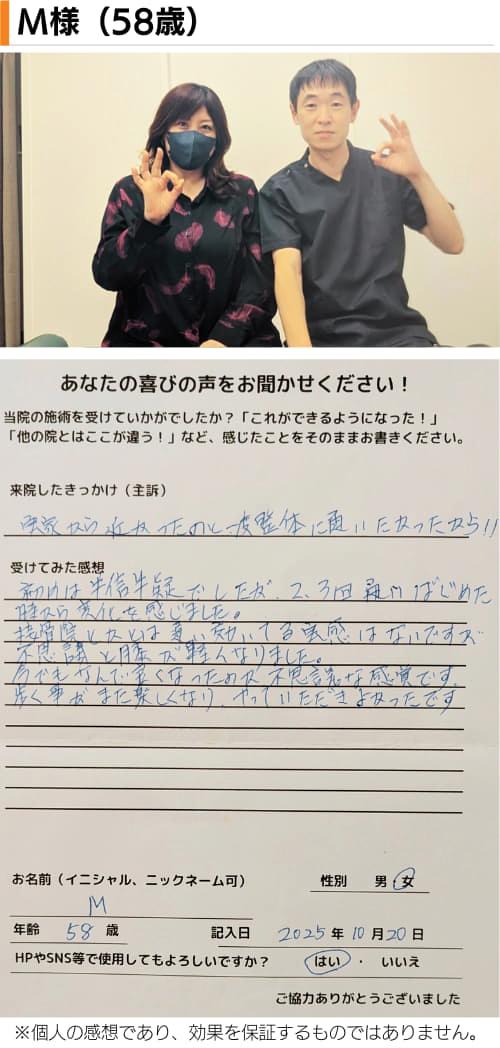 M様（58歳）
あなたの喜びの声をお聞かせください！
当院の施術を受けていかがでしたか？「これができるようになった！」
「他の院とはここが違う！」など、感じたことをそのままお書きください。
来院したきっかけ（主訴）
実家から近かったのと波整体に通いたかったから!!
受けてみた感想
初めは半信半疑でしたが、2、3回通いはじめた
時から変化を感じました。
接骨院などとは違い効いてる実感はないですが
不思議と膝が軽くなりました。
今でもなんで良くなったのか不思議な感覚です。
歩く事がまた楽しくなり、やっていただきよかったです
お名前（イニシャル、ニックネーム可）
性別 男・女
M
年齢 58 歳 記入日 2025年10月20日
HPやSNS等で使用してもよろしいですか？ はい ・ いいえ
ご協力ありがとうございました
※個人の感想であり、効果を保証するものではありません。